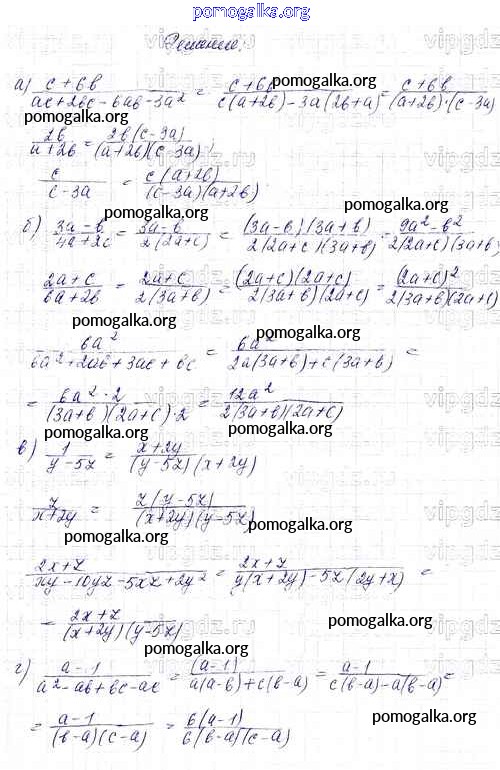 pomogalka.org
Решение.
а) (c+6b)/(ac+2bc-6ab-3a²) = (c+6b)/(c(a+2b)-3a(2b+a)) = (c+6b)/((a+2b)·(c-3a))
pomogalka.org
2b/(a+2b) = 2b(c-3a)/((a+2b)(c-3a));
pomogalka.org
c/(c-3a) = c(a+2b)/((c-3a)(a+2b))
pomogalka.org
б) (3a-b)/(4a+2c) = (3a-b)/(2(2a+c)) = (3a-b)(3a+b)/(2(2a+c)(3a+b)) = (9a²-b²)/(2(2a+c)(3a+b));
(2a+c)/(6a+2b) = (2a+c)/(2(3a+b)) = (2a+c)(2a+c)/(2(3a+b)(2a+c)) = (2a+c)²/(2(3a+b)(2a+c))
pomogalka.org pomogalka.org
6a²/(6a²+2ab+3ac+bc) = 6a²/(2a(3a+b)+c(3a+b)) =
= 6a²·2/((3a+b)(2a+c)·2) = 12a²/(2(3a+b)(2a+c))
pomogalka.org pomogalka.org
в) 1/(y-5z) = (x+2y)/((y-5z)(x+2y))
pomogalka.org
z/(x+2y) = z(y-5z)/((x+2y)(y-5z))
pomogalka.org pomogalka.org
(2x+z)/(xy-10yz-5xz+2y²) = (2x+z)/(y(x+2y)-5z(2y+x)) =
= (2x+z)/((x+2y)(y-5z))
pomogalka.org
pomogalka.org
г) (a-1)/(a²-ab+bc-ac) = (a-1)/(a(a-b)+c(b-a)) = (a-1)/(c(b-a)-a(b-a)) =
= (a-1)/((b-a)(c-a)) = 6(a-1)/(6(b-a)(c-a))
pomogalka.org
pomogalka.org